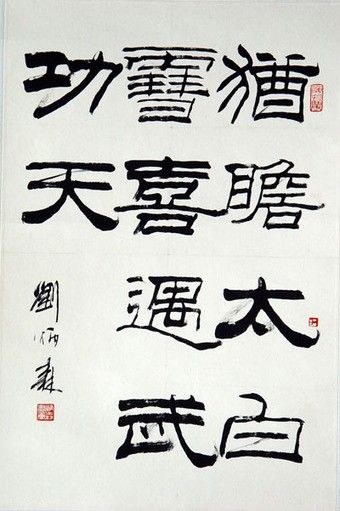 猶瞻太白
雪喜遇武
功天
劉炳森